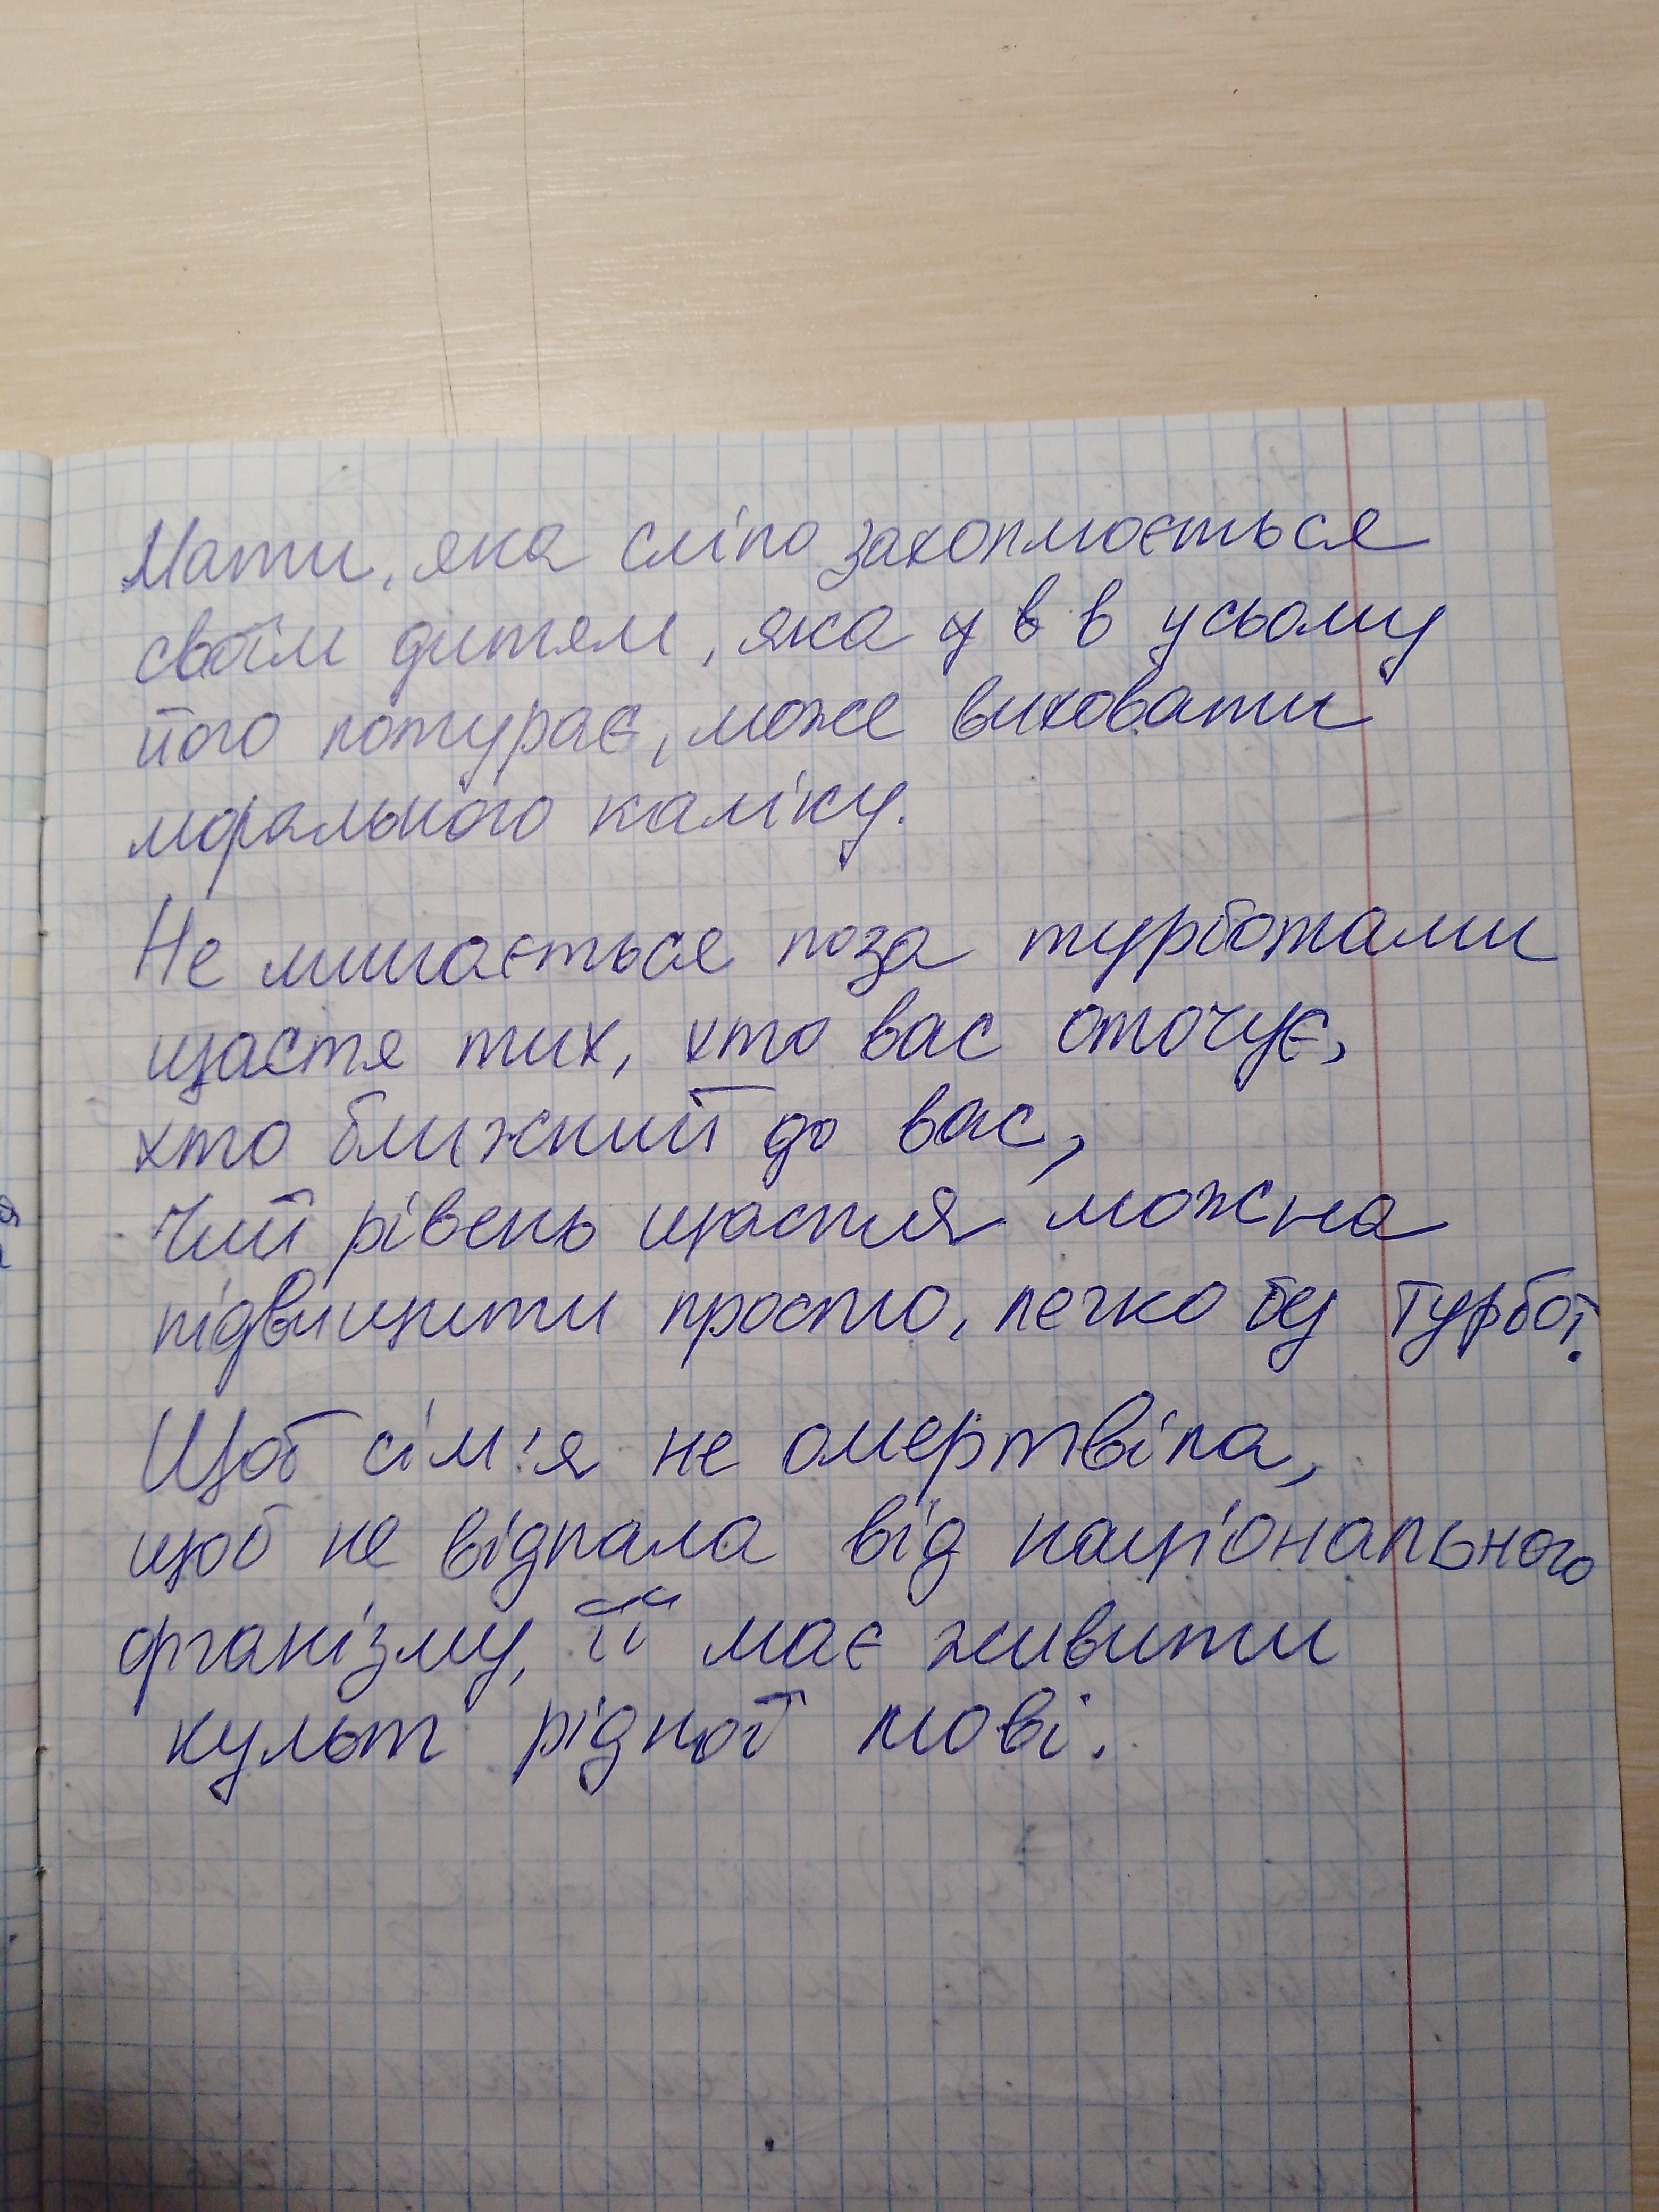 Мати, яка сліпо захоплюється
своїм дитям, яка в усьому
його потурає, може виховати
морального каліку.
Не лишається поза турботами
щастя тих, хто вас оточує,
хто ближний до вас,
Чий рівень щастя можна
підвищити просто, легко бз турбот.
Щоб сім'я не омертвіла,
щоб не відпала від національного
організму, її має живити
культ рідної мові.